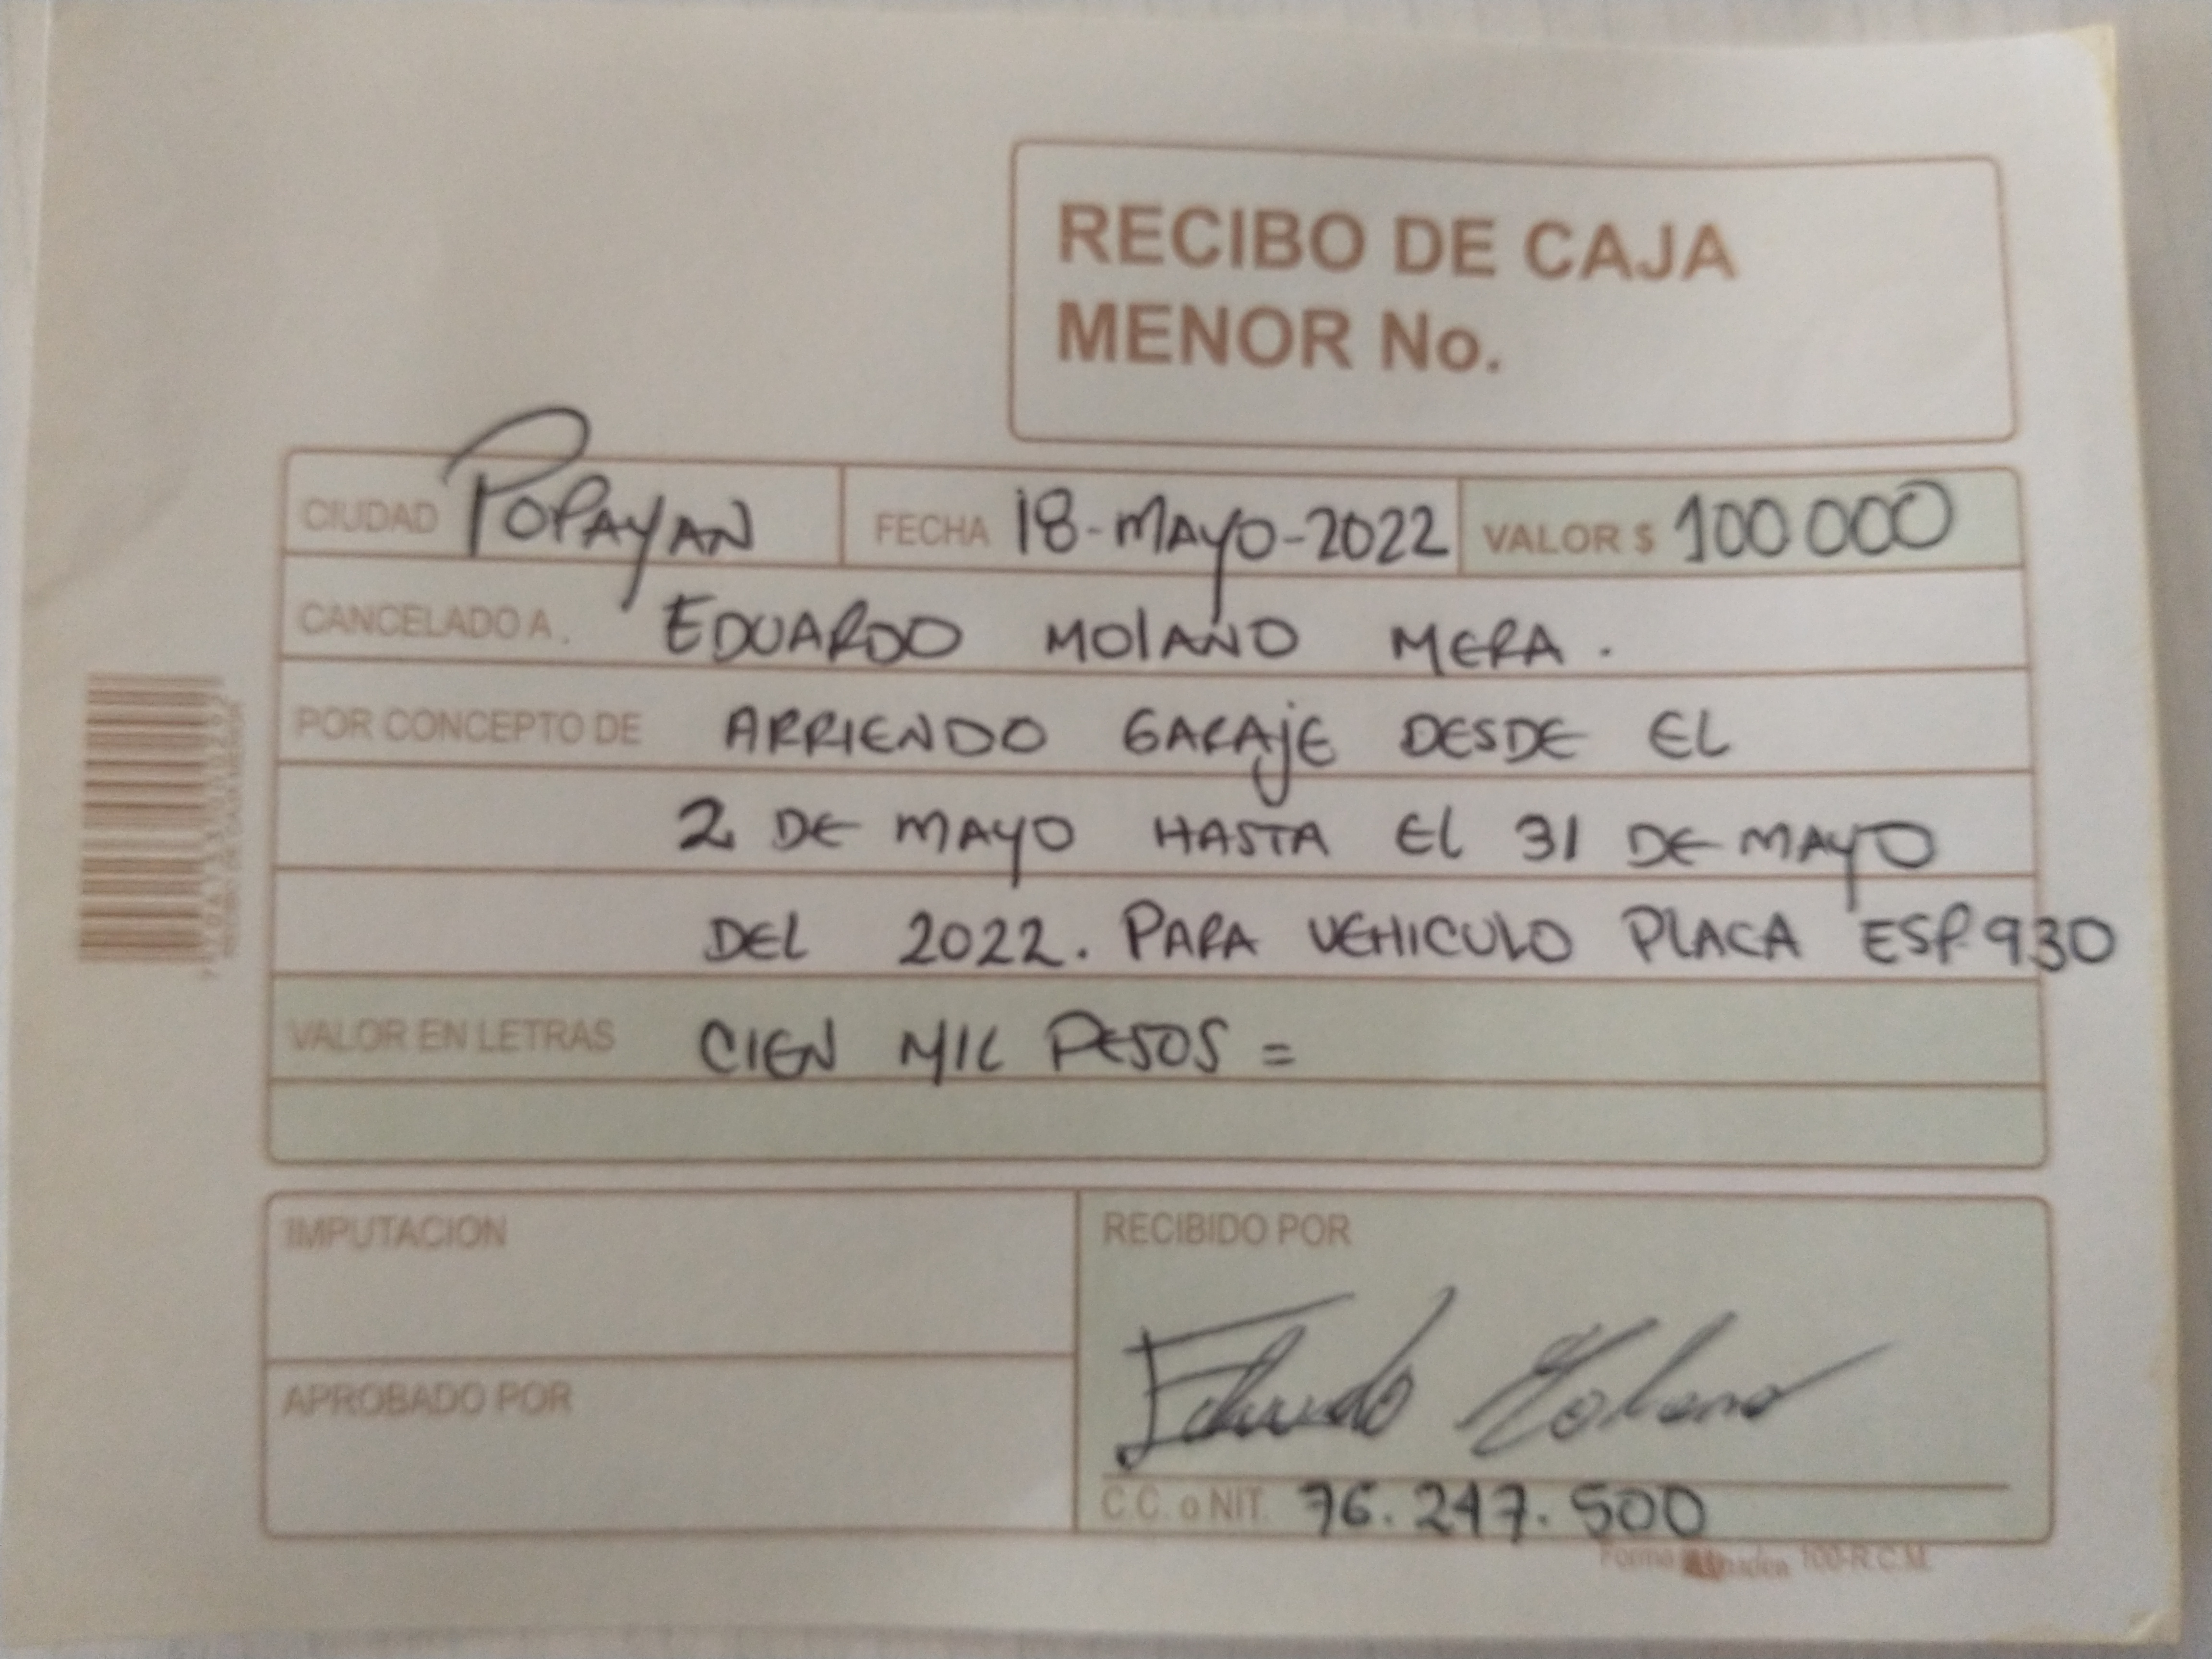 RECIBO DE CAJA
MENOR No.
CIUDAD POPAYAN FECHA 18-MAYO-2022 VALOR $ 100 000
CANCELADO A. EDUARDO MOLANO MERA.
POR CONCEPTO DE ARRIENDO GARAJE DESDE EL
2 DE MAYO HASTA EL 31 DE MAYO
DEL 2022. PARA VEHICULO PLACA 930
VALOR EN LETRAS CIEN MIL PESOS =
IMPUTACION
RECIBIDO POR
Eduardo Molano
APROBADO POR
C.C. o NIT. 76.247.500
Forma 100-R.C.M.